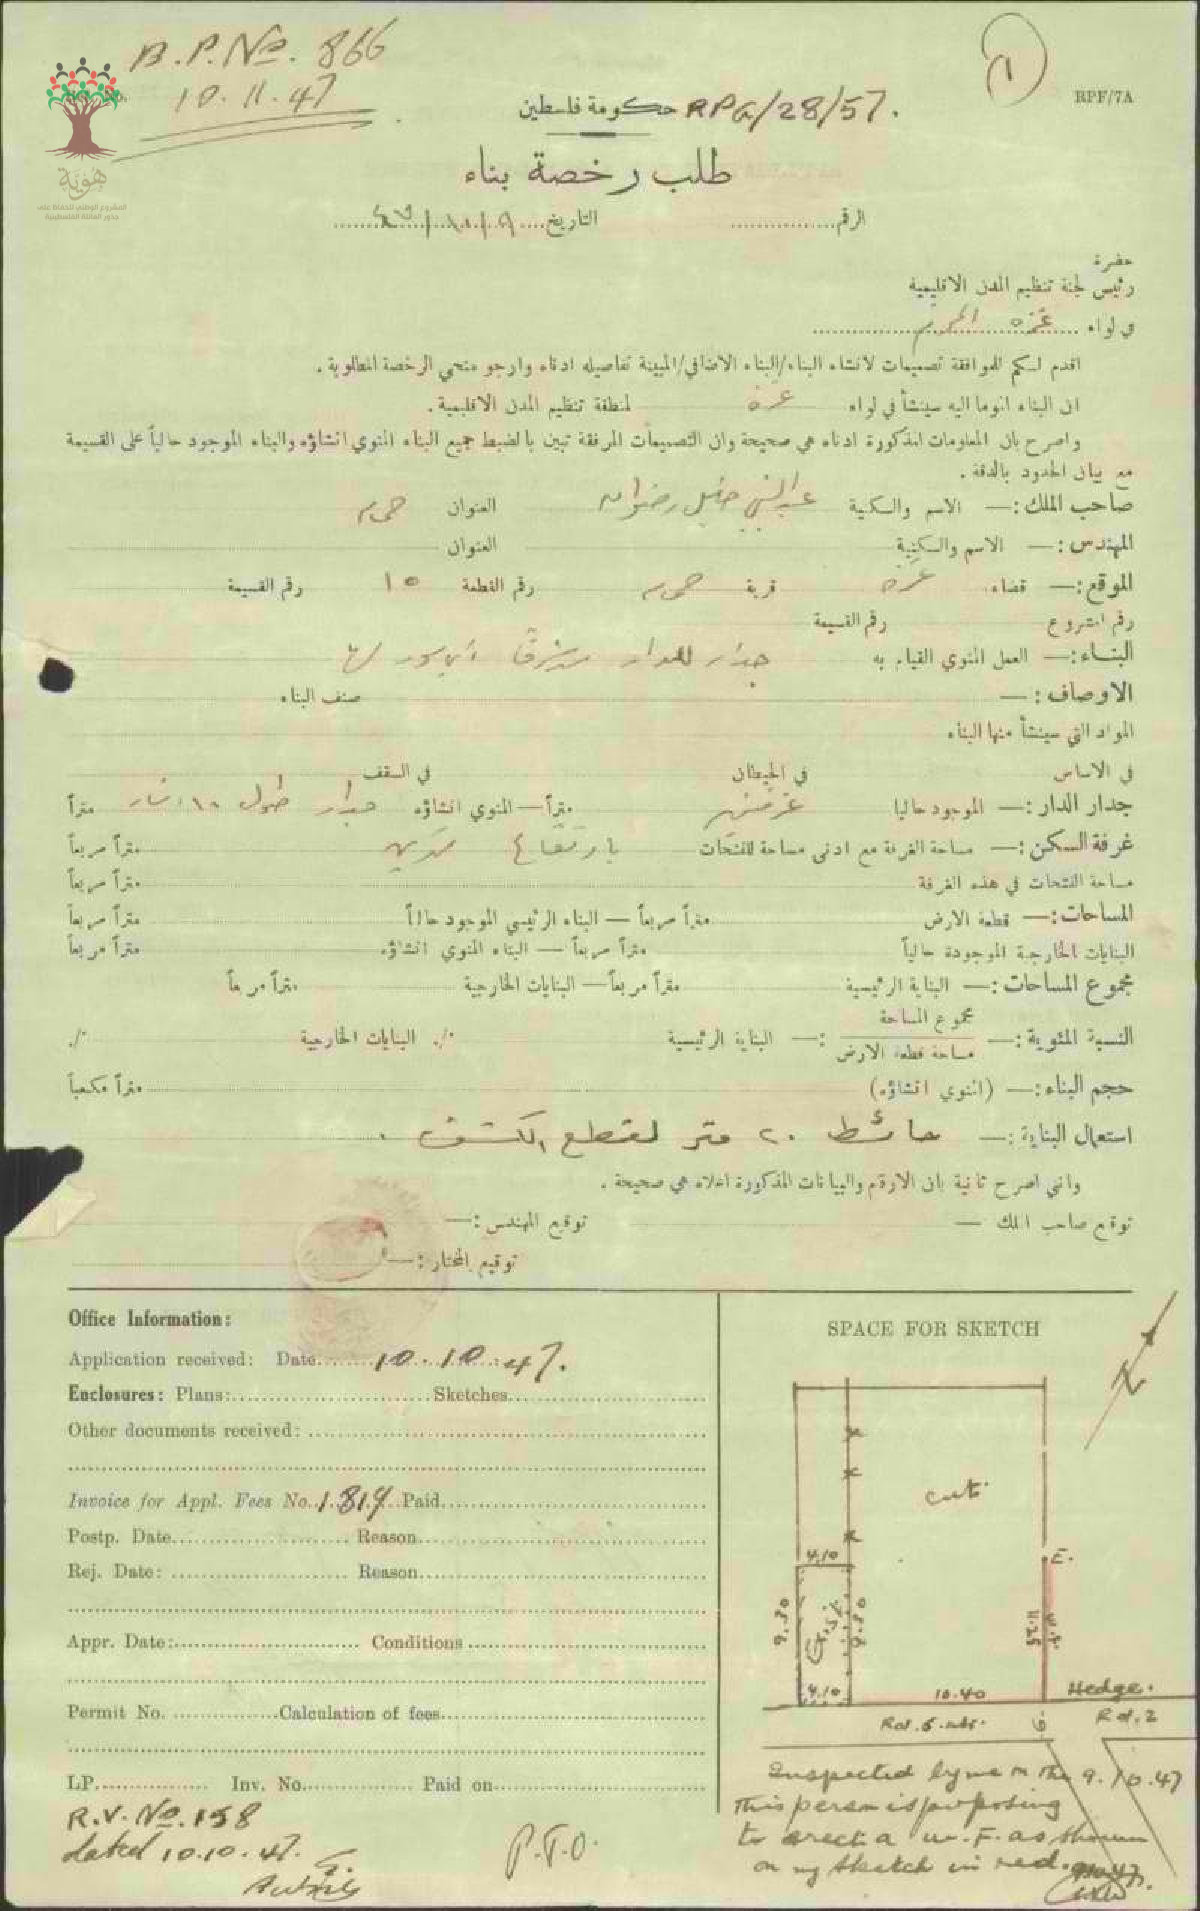 B.P.No. 866
10.11.47
هوية
المشروع الوطني للحفاظ على
جذور العائلة الفلسطينية
1
RPF/7A
حكومة فلسطين RPG/28/57.
طلب رخصة بناء
الرقم التاريخ ٩/١٠/٤٧
حضرة
رئيس لجنة تنظيم المدن الاقليمية
في لواء غزه
اقدم لكم للموافقة تصميمات لانشاء البناء/البناء الاضافي/المبينة تفاصيله ادناه وارجو منحي الرخصة المطلوبة.
ان البناء المومأ اليه سينشأ في لواء غزة لمنطقة تنظيم المدن الاقليمية.
واصرح بان المعلومات المذكورة ادناه هي صحيحة وان التصميمات المرفقة تبين بالضبط جميع البناء المنوي انشاؤه والبناء الموجود حالياً على القسيمة
مع بيان الحدود بالدقة.
صاحب الملك:— الاسم والكنية عبد النبي خليل رضوان العنوان
المهندس:— الاسم والكنية العنوان
الموقع:— قضاء غزه قرية رقم القطعة ١٥ رقم القسيمة
رقم المشروع رقم القسيمة
البناء:— العمل المنوي القيام به جدار
الاوصاف:— صنف البناء
المواد التي سينشأ منها البناء
في الاساس في الحيطان في السقف
جدار الدار:— الموجود حاليا متراً— المنوي انشاؤه جدار طول ١٠ امتار متراً
غرفة السكن:— مساحة الغرفة مع ادنى مساحة للفتحات بارتفاع مترين متراً مربعاً
مساحة الفتحات في هذه الغرفة متراً مربعاً
المساحات:— قطعة الارض متراً مربعاً — البناء الرئيسي الموجود حالاً متراً مربعاً
البنايات الخارجية الموجودة حالياً متراً مربعاً — البناء المنوي انشاؤه متراً مربعاً
مجموع المساحات:— البناية الرئيسية متراً مربعاً— البنايات الخارجية متراً مربعاً
النسبة المئوية:— مجموع المساحة
مساحة قطعة الارض :— البناية الرئيسية ./. البنايات الخارجية ./.
حجم البناء:— (المنوي انشاؤه) متراً مكعباً
استعمال البناية:— حائط ٢٠ متر لقطع الكشف.
واني اصرح ثانية بان الارقام والبيانات المذكورة اعلاه هي صحيحة.
توقيع صاحب الملك — توقيع المهندس:—
توقيع المختار:—
Office Information:
Application received: Date 10.10.47.
Enclosures: Plans: Sketches
Other documents received:
Invoice for Appl. Fees No. 1819 Paid
Postp. Date Reason
Rej. Date: Reason
Appr. Date: Conditions
Permit No. Calculation of fees
LP. Inv. No. Paid on
R.V. No. 158
dated 10.10.47.
P.T.O.
SPACE FOR SKETCH
N
4.10
9.30
9.30
4.10
11.25
10.40
Hedge.
Rd. 5. mtr.
Rd. 2
Inspected by me on the 9.10.47
This person is proposing
to erect a w.F. as shown
on my sketch in red.